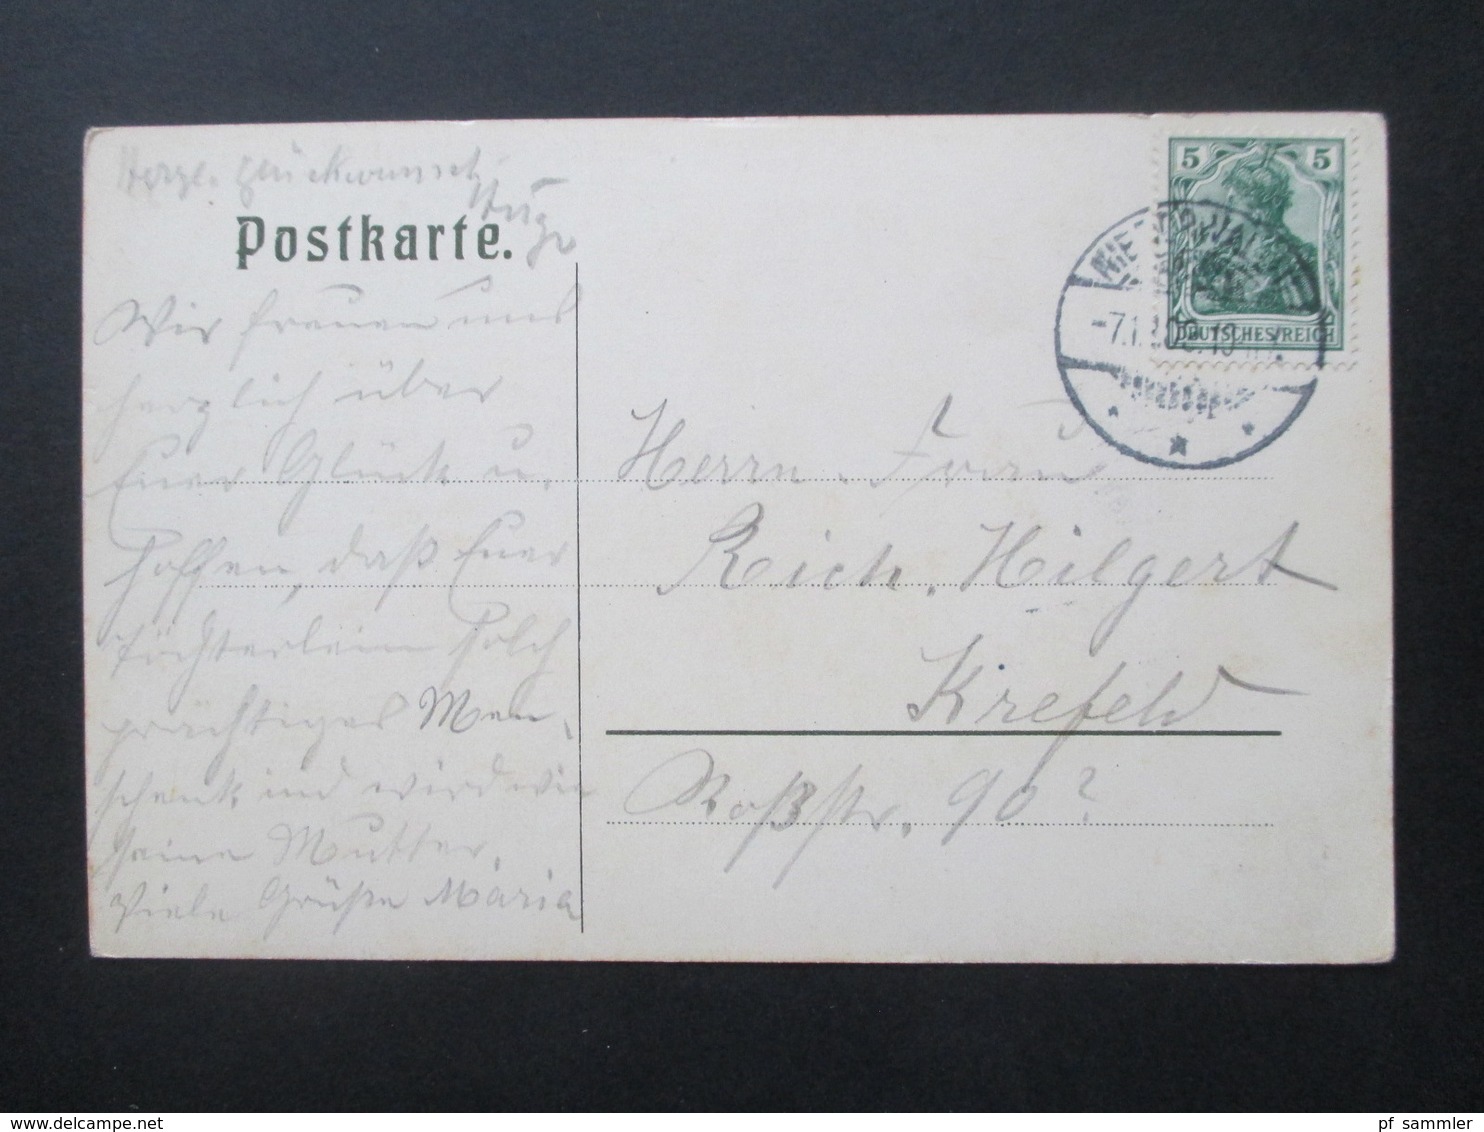 Herzl. Glückwunsch
Hugo
Postkarte.
Wir freuen uns
herzlich über
Euer Glück u.
hoffen, daß Euer
Töchterlein solch
prächtiges Men-
schenk ind wird wie
seine Mutter.
Viele Grüße Maria
5 5
DEUTSCHES REICH
-7.1.
Herrn. Frau
Reich. Hilgert
Krefeld
Roßstr. 90?
pf sammler